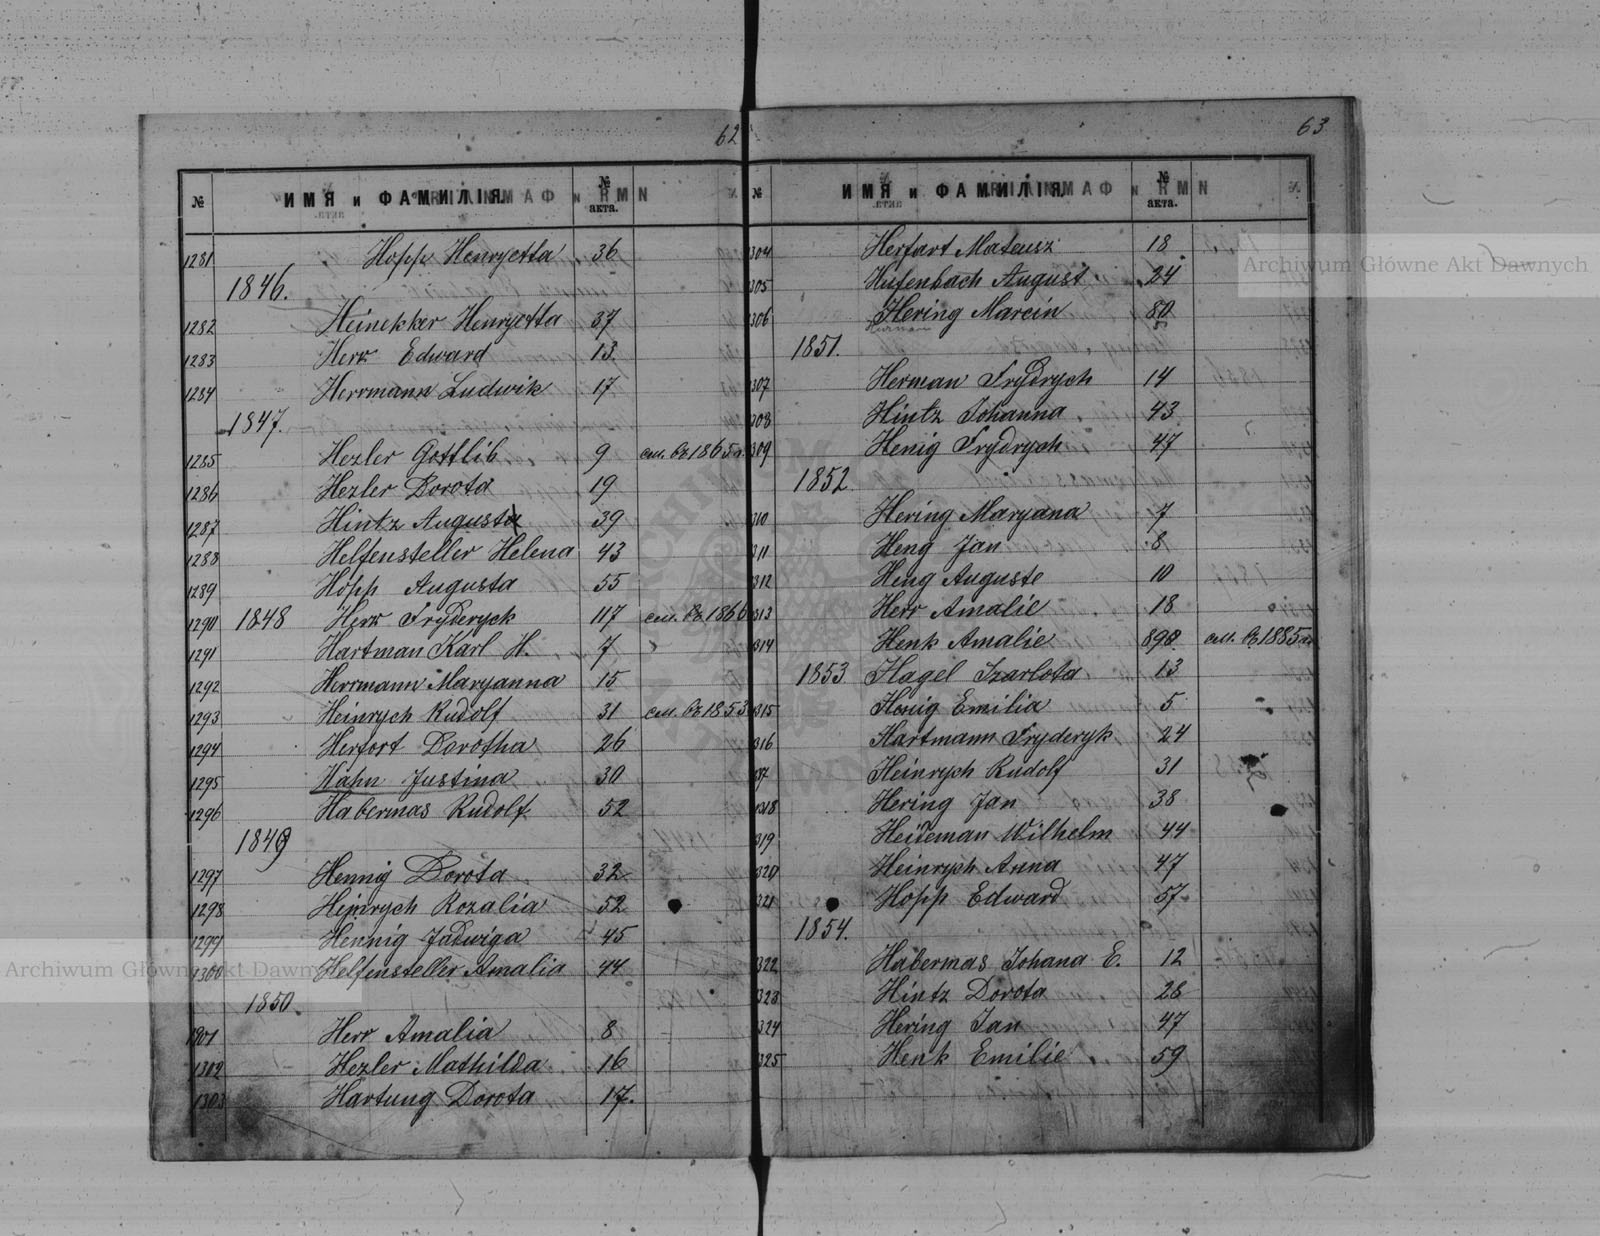 62
№ ИМЯ и ФАМИЛІЯ № акта.
1281 Hopp Henryetta 36
1846.
1282 Heinekker Henryetta 37
1283 Herk Edward 13
1284 Herrmann Ludwik 17
1847.
1285 Hezler Gottlib 9 см. въ 1865 г.
1286 Hezler Dorota 19
1287 Hintz Augusta 39
1288 Helfensteller Helena 43
1289 Hopp Augusta 55
1290 1848 Herk Fryderyk 117 см. въ 1866
1291 Hartman Karl H. 7
1292 Herrmann Maryanna 15
1293 Heinrych Rudolf 31 см. въ 1853
1294 Herfort Dorotha 26
1295 Hahn Justina 30
1296 Habermas Rudolf 52
1849
1297 Hennig Dorota 32
1298 Heinrych Rozalia 52
1299 Hennig Jadwiga 45
1300 Helfensteller Amalia 44
1850.
1301 Herr Amalia 8
1302 Hezler Mathilda 16
1303 Hartung Dorota 17.
63
№ ИМЯ и ФАМИЛІЯ № акта.
304 Herfart Mateusz 18
305 Hufenbach August 24
306 Hering Marcin 80
1851.
307 Herman Frydrych 14
308 Hintz Johanna 43
309 Henig Frydrych 47
1852.
310 Hering Maryana 7
311 Heng Jan 8
312 Heng Auguste 10
313 Herr Amalie 18
314 Henk Amalie 89 см. въ 1885 г.
1853 Hagel Szarlota 13
315 Henig Emilia 5
316 Hartmann Fryderyk 24
317 Heinrych Rudolf 31
1318 Hering Jan 38
319 Heideman Wilhelm 44
320 Heinrych Anna 47
321 Hopp Edward 57
1854.
322 Habermas Johana E. 12
323 Hintz Dorota 28
324 Hering Jan 47
325 Henk Emilie 59
Archiwum Główne Akt Dawnych
Archiwum Główne Akt Dawnych